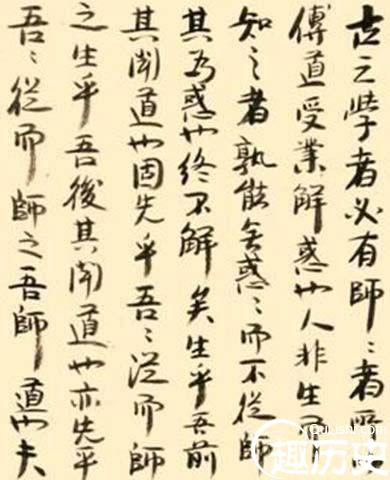 古之學者必有師〻者所以
傳道受業解惑也人非生而
知之者孰能無惑〻而不從師
其為惑也終不解矣生乎吾前
其聞道也固先乎吾〻從而師
之生乎吾後其聞道也亦先乎
吾〻從而師之吾師道也夫
Qulishi.com
趣历史